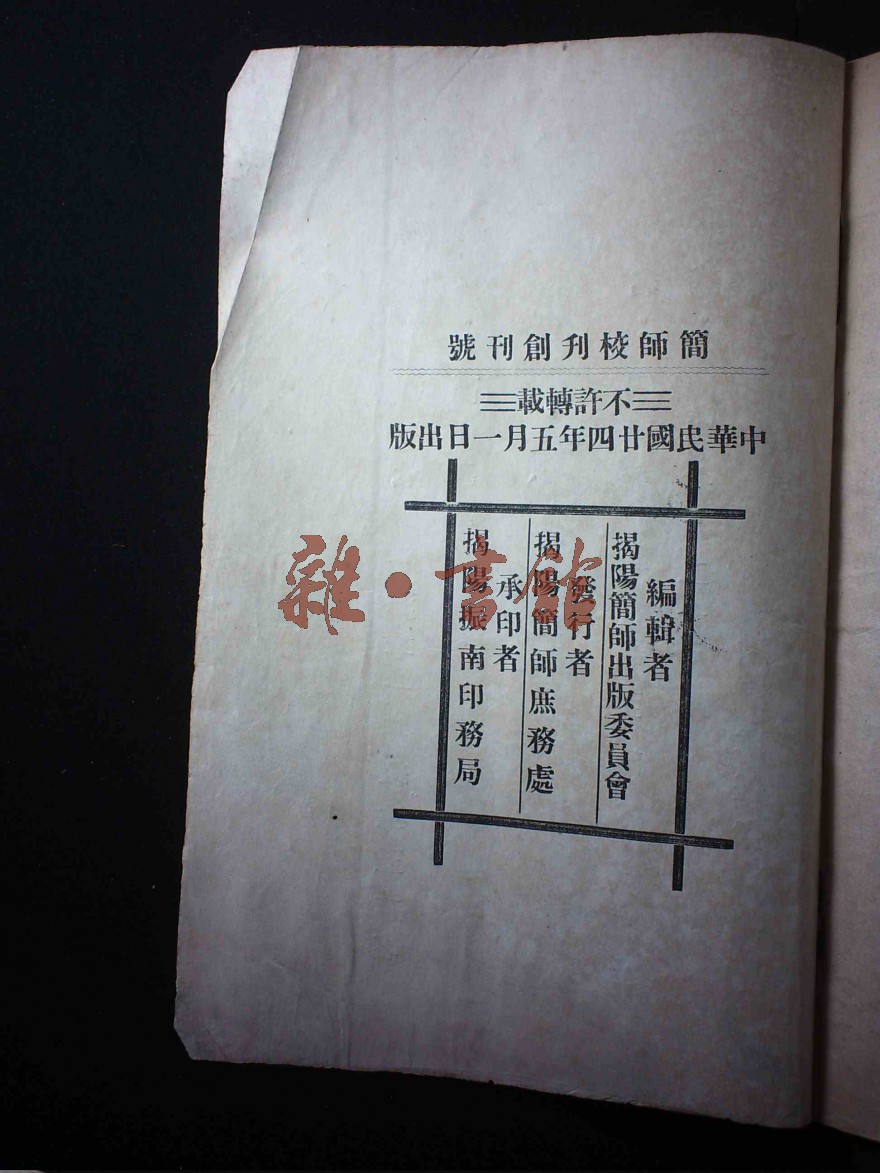 簡師校刋創刊號
不許轉載
中華民國廿四年五月一日出版
編輯者
揭陽簡師出版委員會
發行者
揭陽簡師庶務處
承印者
揭陽振南印務局
雜·書館